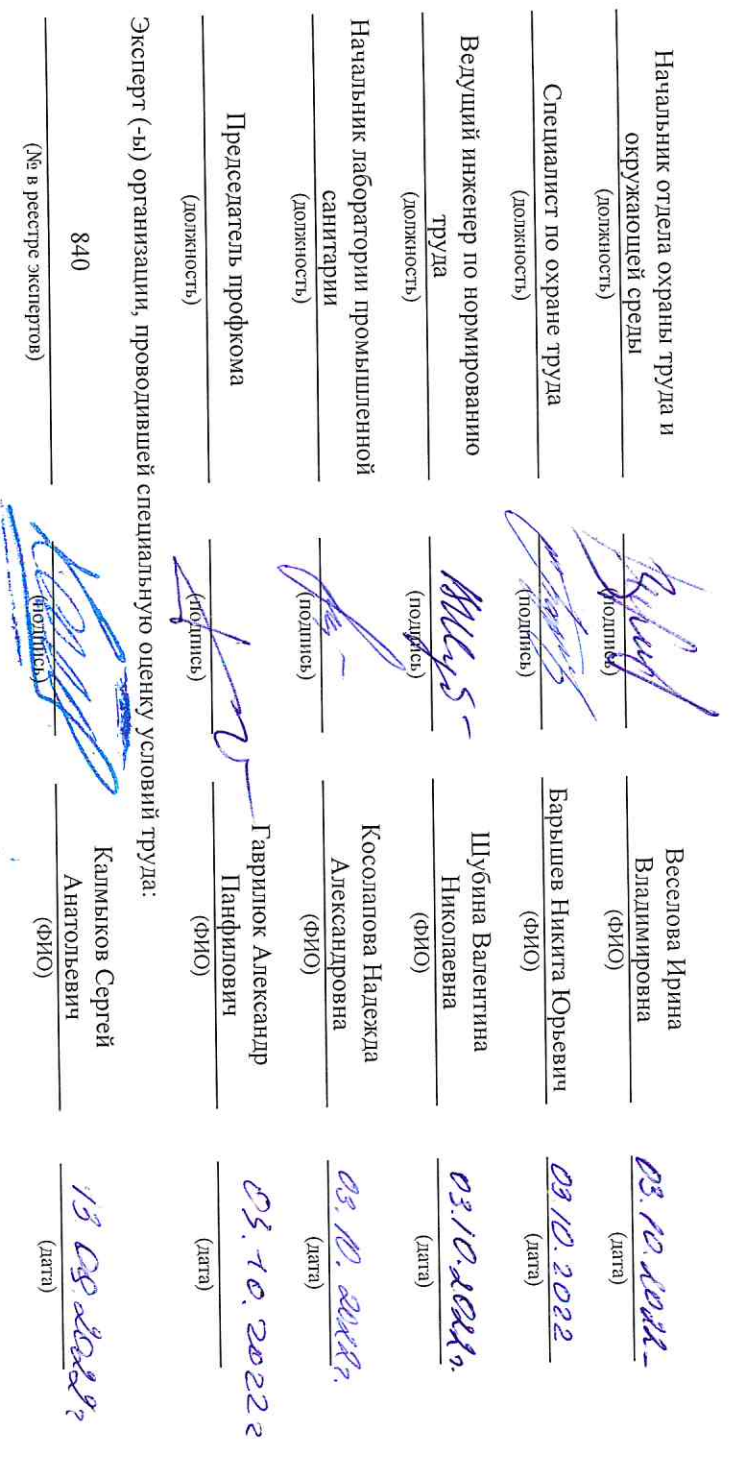 Начальник отдела охраны труда и
окружающей среды
(должность)
(подпись)
Веселова Ирина
Владимировна
(ФИО)
03.10.2022
(дата)
Специалист по охране труда
(должность)
(подпись)
Барышев Никита Юрьевич
(ФИО)
03 10. 2022
(дата)
Ведущий инженер по нормированию
труда
(должность)
(подпись)
Шубина Валентина
Николаевна
(ФИО)
03.10.2022г.
(дата)
Начальник лаборатории промышленной
санитарии
(должность)
(подпись)
Косолапова Надежда
Александровна
(ФИО)
03. 10. 2022г.
(дата)
Председатель профкома
(должность)
(подпись)
Гаврилюк Александр
Панфилович
(ФИО)
03.10.2022г
(дата)
Эксперт (-ы) организации, проводившей специальную оценку условий труда:
840
(№ в реестре экспертов)
(подпись)
Калмыков Сергей
Анатольевич
(ФИО)
2022г
(дата)